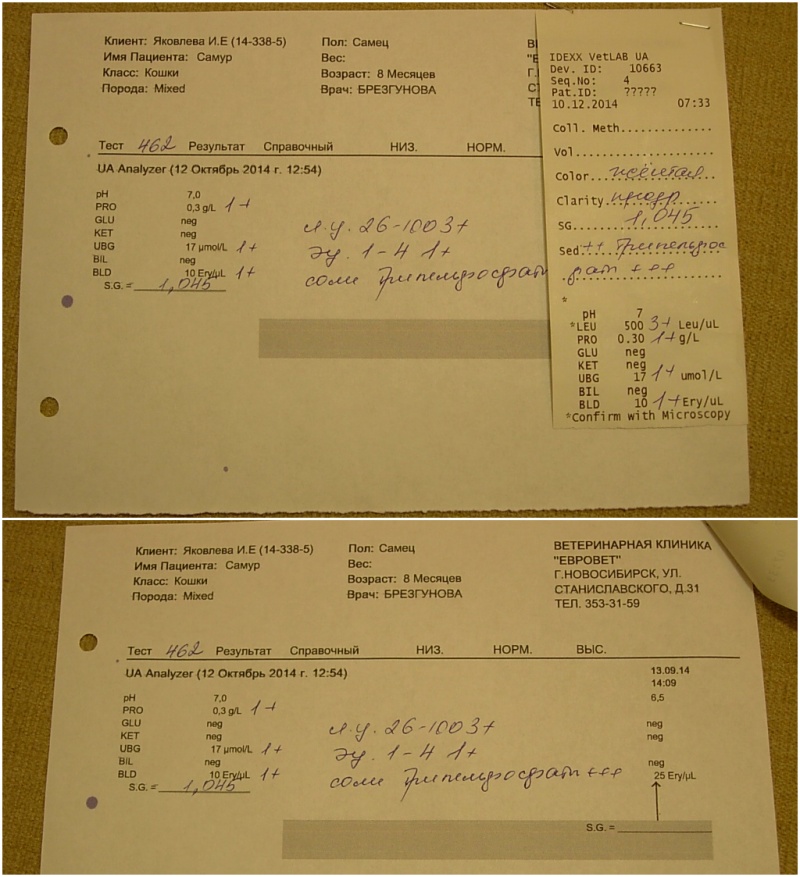 Клиент: Яковлева И.Е (14-338-5) Пол: Самец
Имя Пациента: Самур Вес:
Класс: Кошки Возраст: 8 Месяцев
Порода: Mixed Врач: БРЕЗГУНОВА
Тест 462 Результат Справочный НИЗ. НОРМ.
UA Analyzer (12 Октябрь 2014 г. 12:54)
pH 7,0
PRO 0,3 g/L 1+
GLU neg
KET neg
UBG 17 µmol/L 1+
BIL neg
BLD 10 Ery/µL 1+
S.G. = 1,045
л.у. 26-100 3+
эу. 1-4 1+
соли Трипельфосфаты
IDEXX VetLAB UA
Dev. ID: 10663
Seq.No: 4
Pat.ID: ?????
10.12.2014 07:33
Coll. Meth.............
Vol....................
Color...желтая
Clarity
SG. 1,045
Sed.++ Трипельфос
фат +++
*
pH 7
*LEU 500 3+ Leu/uL
PRO 0.30 1+ g/L
GLU neg
KET neg
UBG 17 1+ umol/L
BIL neg
BLD 10 1+ Ery/uL
*Confirm with Microscopy
Клиент: Яковлева И.Е (14-338-5) Пол: Самец
Имя Пациента: Самур Вес:
Класс: Кошки Возраст: 8 Месяцев
Порода: Mixed Врач: БРЕЗГУНОВА
ВЕТЕРИНАРНАЯ КЛИНИКА
"ЕВРОВЕТ"
Г.НОВОСИБИРСК, УЛ.
СТАНИСЛАВСКОГО, Д.31
ТЕЛ. 353-31-59
Тест 462 Результат Справочный НИЗ. НОРМ. ВЫС.
UA Analyzer (12 Октябрь 2014 г. 12:54) 13.09.14
14:09
pH 7,0 6,5
PRO 0,3 g/L 1+
GLU neg neg
KET neg neg
UBG 17 µmol/L 1+
BIL neg neg
BLD 10 Ery/µL 1+ 25 Ery/µL
S.G. = 1,045
л.у. 26-100 3+
эу. 1-4 1+
соли Трипельфосфаты +++
S.G. =